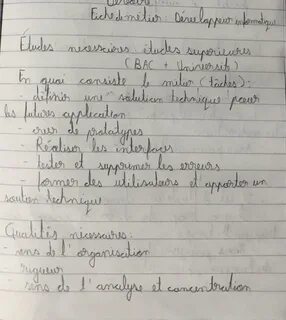 Fiche de métier: Développeur informatique
Etudes necessaires études superieures
(BAC + Université)
En quoi consiste le métier (tâches):
- définir une solution technique pour
les futures application
- créer de prototypes
- Réaliser les interfaces
- tester et supprimer les erreurs
- former des utilisateurs et apporter un
soutien technique
Qualités nécessaires:
- sens de l'organisation
rigueur
- sens de l'analyse et concentration